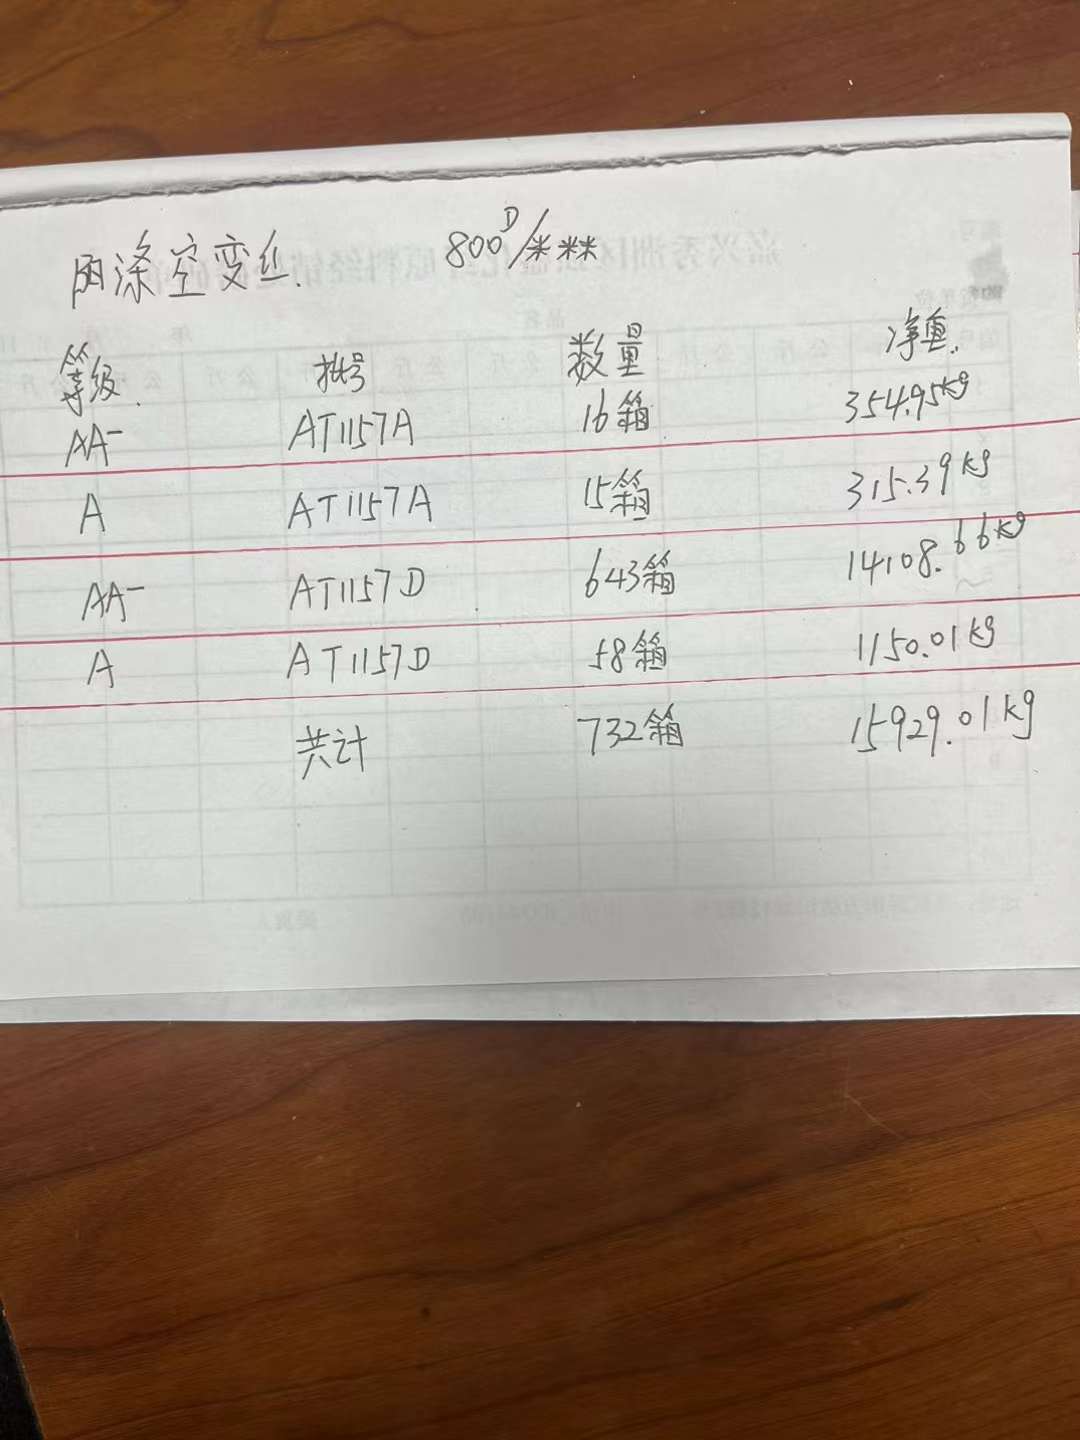 丙涤空变丝. 800D/****
等级. 批号 数量 净重.
AA- AT1157A 16箱 354.95kg
A AT1157A 15箱 315.39kg
AA- AT1157D 643箱 14108.66kg
A AT1157D 58箱 1150.01kg
共计 732箱 15929.01kg